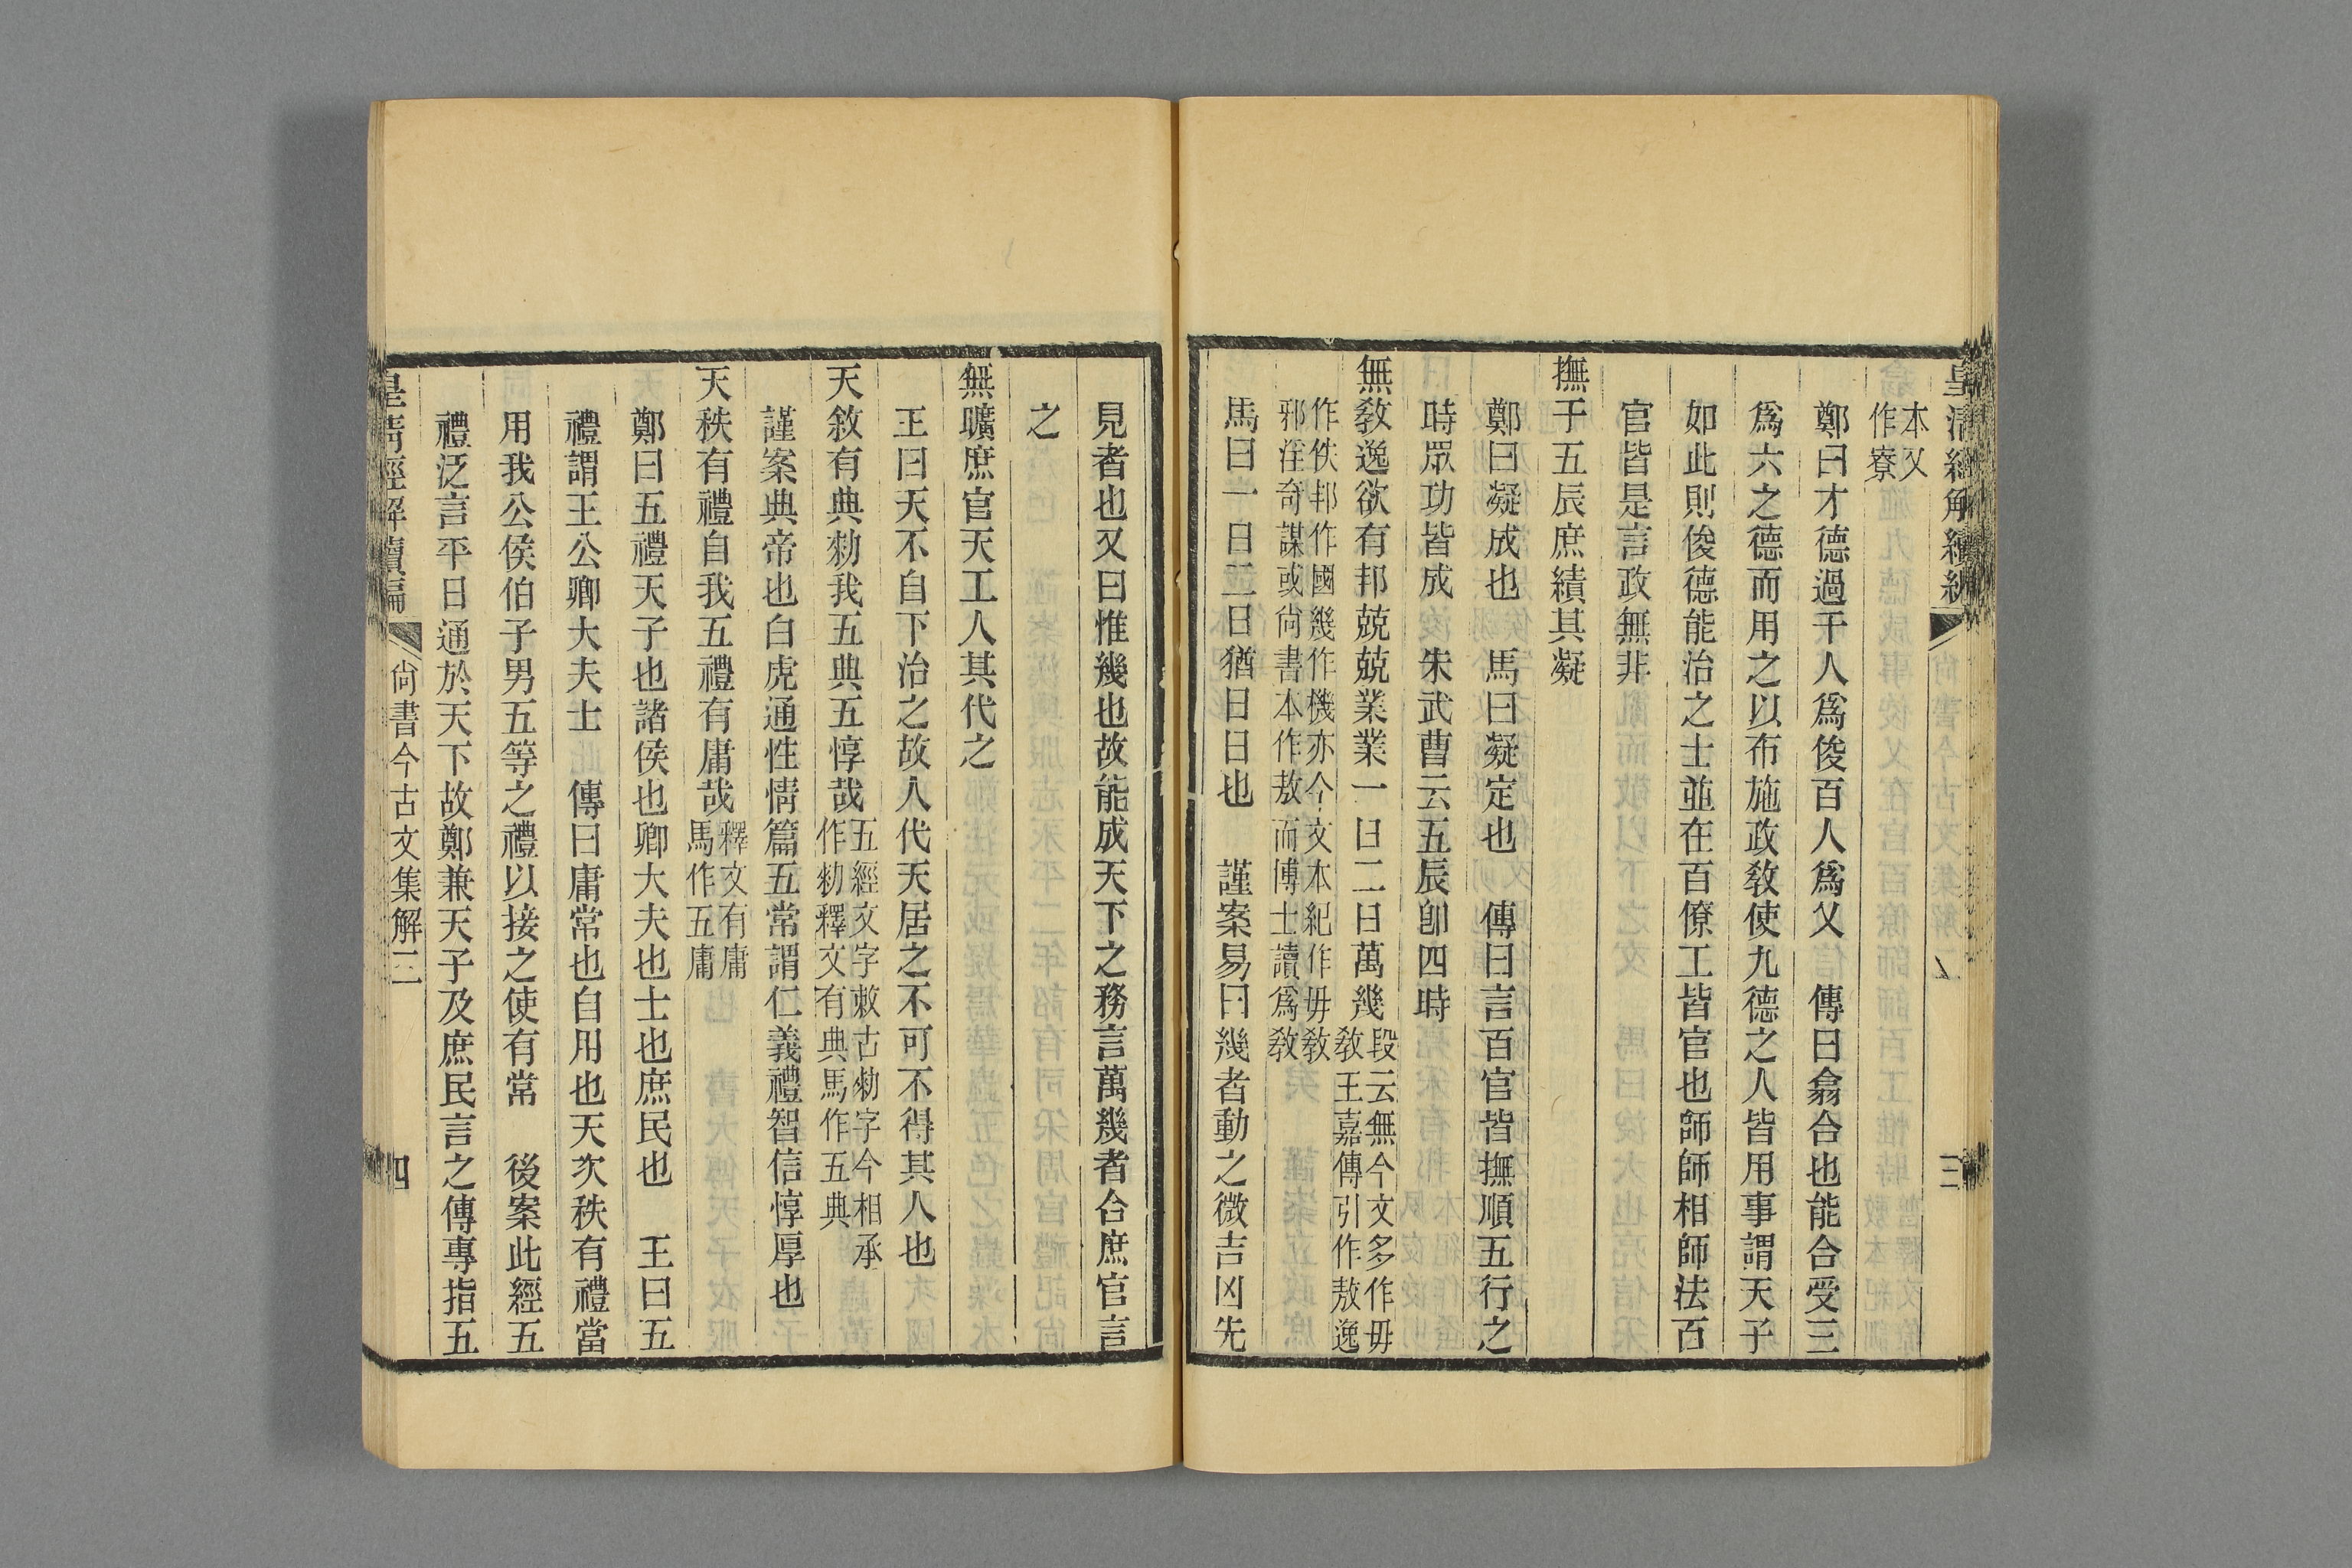 皇清經解續編
三
本乂
作寮
鄭曰才德過千人爲俊百人爲乂　傳曰翕合也能合受三
爲六之德而用之以布施政敎使九德之人皆用事謂天子
如此則俊德能治之士並在百僚工皆官也師師相師法百
官皆是言政無非
撫于五辰庶績其凝
鄭曰凝成也　馬曰凝定也　傳曰言百官皆撫順五行之
時眾功皆成　朱武曹云五辰卽四時
無敎逸欲有邦兢兢業業一日二日萬幾段云無今文多作毋
敎王嘉傳引作敖逸
作佚邦作國幾作機亦今文本紀作毋敎
邪淫奇謀或尙書本作敖而博士讀爲敎
馬曰一日二日猶日日也　謹案易曰幾者動之微吉凶先
見者也又曰惟幾也故能成天下之務言萬幾者合庶官言
之
無曠庶官天工人其代之
王曰天不自下治之故人代天居之不可不得其人也
天敘有典勑我五典五惇哉五經文字敕古勑字今相承
作勑釋文有典馬作五典
謹案典帝也白虎通性情篇五常謂仁義禮智信惇厚也
天秩有禮自我五禮有庸哉釋文有庸
馬作五庸
鄭曰五禮天子也諸侯也卿大夫也士也庶民也　王曰五
禮謂王公卿大夫士　傳曰庸常也自用也天次秩有禮當
用我公侯伯子男五等之禮以接之使有常　後案此經五
禮泛言平日通於天下故鄭兼天子及庶民言之傳專指五
皇清經解續編
尙書今古文集解二
四